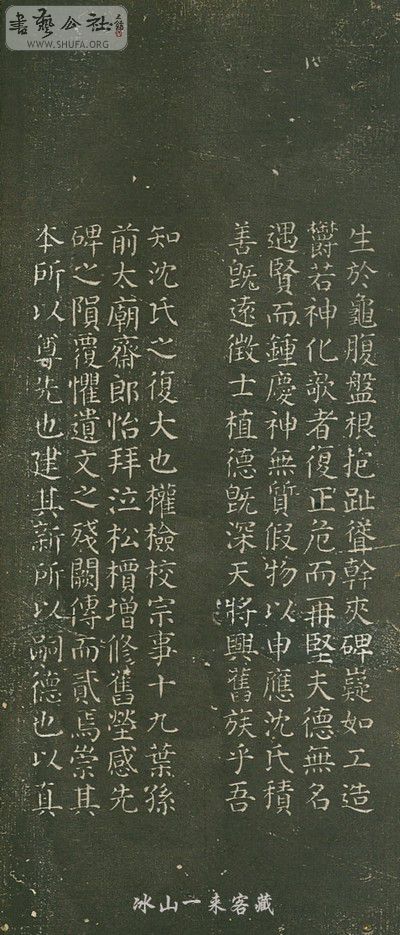 書藝公社
WWW.SHUFA.ORG
生於龜腹盤根抱趾聳幹夾碑嶷如工造
欝若神化欹者復正危而再堅夫德無名
遇賢而鍾慶神無質假物以申應沈氏積
善既遠徵士植德既深天將興舊族乎吾
知沈氏之復大也權檢校宗事十九葉孫
前太廟齋郎怡拜泣松檟增修舊塋感先
碑之隕覆懼遺文之殘闕傳而貳焉崇其
本所以尊先也建其新所以嗣德也以真
冰山一来客藏